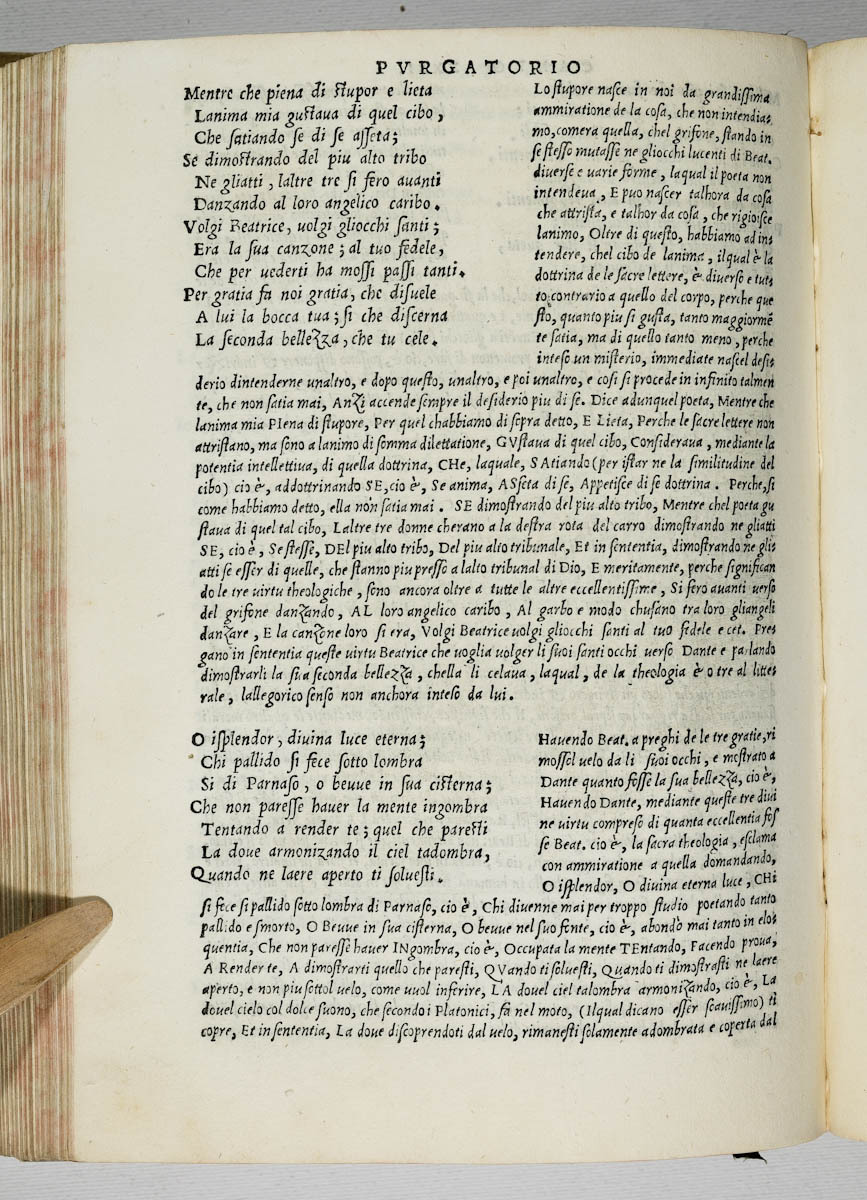 PVRGATORIO
Mentre che piena di stupor e lieta
Lanima mia gustaua di quel cibo,
Che satiando se di se asseta;
Se dimostrando del piu alto tribo
Ne gliatti, laltre tre si fero auanti
Danzando al loro angelico caribo.
Volgi Beatrice, uolgi gliocchi santi;
Era la sua canzone; al tuo fedele,
Che per uederti ha mossi passi tanti.
Per gratia fa noi gratia, che disuele
A lui la bocca tua; si che discerna
La seconda bellezza, che tu cele.
Lo stupore nasce in noi da grandissima
ammiratione de la cosa, che non intendia=
mo, comera quella, chel grifone, stando in
se stesso mutasse ne gliocchi lucenti di Beat.
diuerse e uarie forme, laqual il poeta non
intendeua, E puo nascer talhora da cosa
che attrista, e talhor da cosa, che rigioisce
lanimo, Oltre di questo, habbiamo ad in=
tendere, chel cibo de lanima, ilqual è la
dottrina de le sacre lettere, è diuerso e tut=
to contrario a quello del corpo, perche que
sto, quanto piu si gusta, tanto maggiormē
te satia, ma di quello tanto meno, perche
inteso un misterio, immediate nascel desi=
derio dintenderne unaltro, e dopo questo, unaltro, e poi unaltro, e cosi si procede in infinito talmen
te, che non satia mai, Anzi accende sempre il desiderio piu di se. Dice adunquel poeta, Mentre che
lanima mia PIena di stupore, Per quel chabbiamo di sopra detto, E LIeta, Perche le sacre lettere non
attristano, ma sono a lanimo di somma dilettatione, GVstaua di quel cibo, Consideraua, mediante la
potentia intellettiua, di quella dottrina, CHe, laquale, SAtiando (per istar ne la similitudine del
cibo) cio è, addottrinando SE, cio è, Se anima, ASseta di se, Appetisce di se dottrina. Perche, si
come habbiamo detto, ella non satia mai. SE dimostrando del piu alto tribo, Mentre chel poeta gu
staua di quel tal cibo, Laltre tre donne cherano a la destra rota del carro dimostrando ne gliatti
SE, cio è, Se stesse, DEl piu alto tribo, Del piu alto tribunale, Et in sententia, dimostrando ne gli=
atti se esser di quelle, che stanno piu presso a lalto tribunal di Dio, E meritamente, perche significan
do le tre uirtu theologiche, sono ancora oltre a tutte le altre eccellentissime, Si fero auanti uerso
del grifone danzando, AL loro angelico caribo, Al garbo e modo chusano tra loro gliangeli
danzare, E la canzone loro si era, Volgi Beatrice uolgi gliocchi santi al tuo fedele e cet. Pre=
gano in sententia queste uirtu Beatrice che uoglia uolger li suoi santi occhi uerso Dante e parlando
dimostrarli la sua seconda bellezza, chella li celaua, laqual, de la theologia è otre al litte=
rale, lallegorico senso non anchora inteso da lui.
O isplendor, diuina luce eterna;
Chi pallido si fece sotto lombra
Si di Parnaso, o beuue in sua cisterna;
Che non paresse hauer la mente ingombra
Tentando a render te; quel che paresti
La doue armonizando il ciel tadombra,
Quando ne laere aperto ti soluesti.
Hauendo Beat. a preghi de le tre gratie, ri
mossol uelo da li suoi occhi, e mostrato a
Dante quanto fosse la sua bellezza, cio è,
Hauendo Dante, mediante queste tre diui
ne uirtu compreso di quanta eccellentia fos
se Beat. cio è, la sacra theologia, esclama
con ammiratione a quella domandando,
O isplendor, O diuina eterna luce, CHi
si fece si pallido sotto lombra di Parnaso, cio è, Chi diuenne mai per troppo studio poetando tanto
pallido e smorto, O Beuue in sua cisterna, O beuue nel suo fonte, cio è, abondò mai tanto in elo=
quentia, Che non paresse hauer INgombra, cio è, Occupata la mente TEntando, Facendo proua,
A Render te, A dimostrarti quello che paresti, QVando ti soluesti, Quando ti dimostrasti ne laere
aperto, e non piu sottol uelo, come uuol inferire, LA douel ciel talombra armonizando, cio è, La
douel cielo col dolce suono, che secondo i Platonici, fa nel moto, (Ilqual dicano esser soauissimo) ti
copre, Et in sententia, La doue discoprendoti dal uelo, rimanesti solamente adombrata e coperta dal